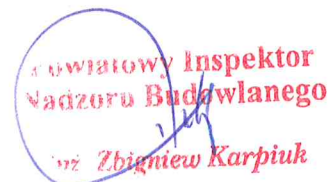 Powiatowy Inspektor
Nadzoru Budowlanego
inż. Zbigniew Karpiuk